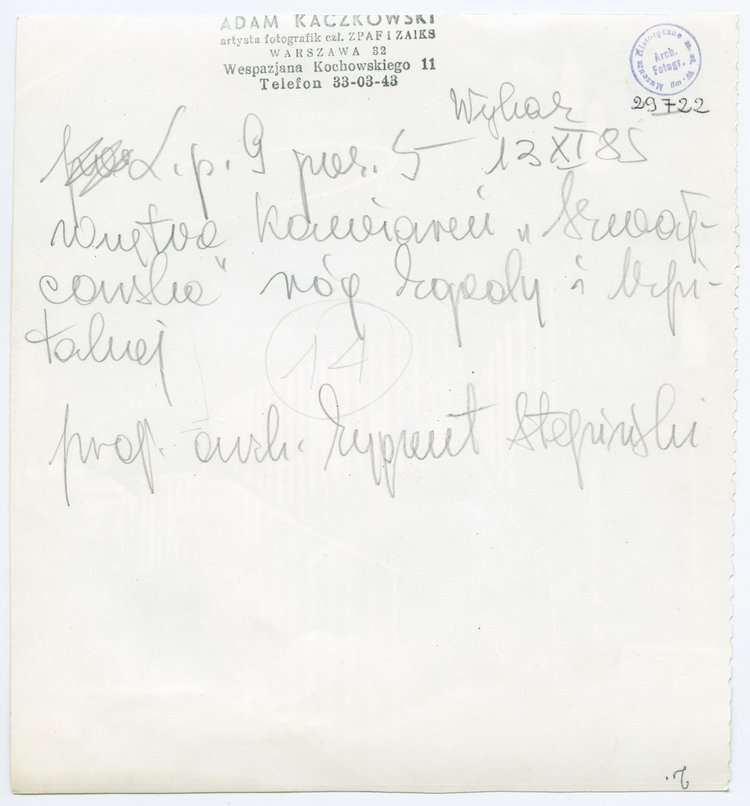 ADAM KACZKOWSKI
artysta fotografik czł. ZPAF i ZAIKS
WARSZAWA 32
Wespazjana Kochowskiego 11
Telefon 33-03-43
Muzeum Historyczne m. st. W-wy
Arch.
Fotogr.
29722
Wykaz
L.p. 9 poz. 5 13 XI 85
wnętrze kawiareń „Szwaj-
carska" róg Zgody i Szpi-
talnej
14
proj. arch. Zygmunt Stępiński